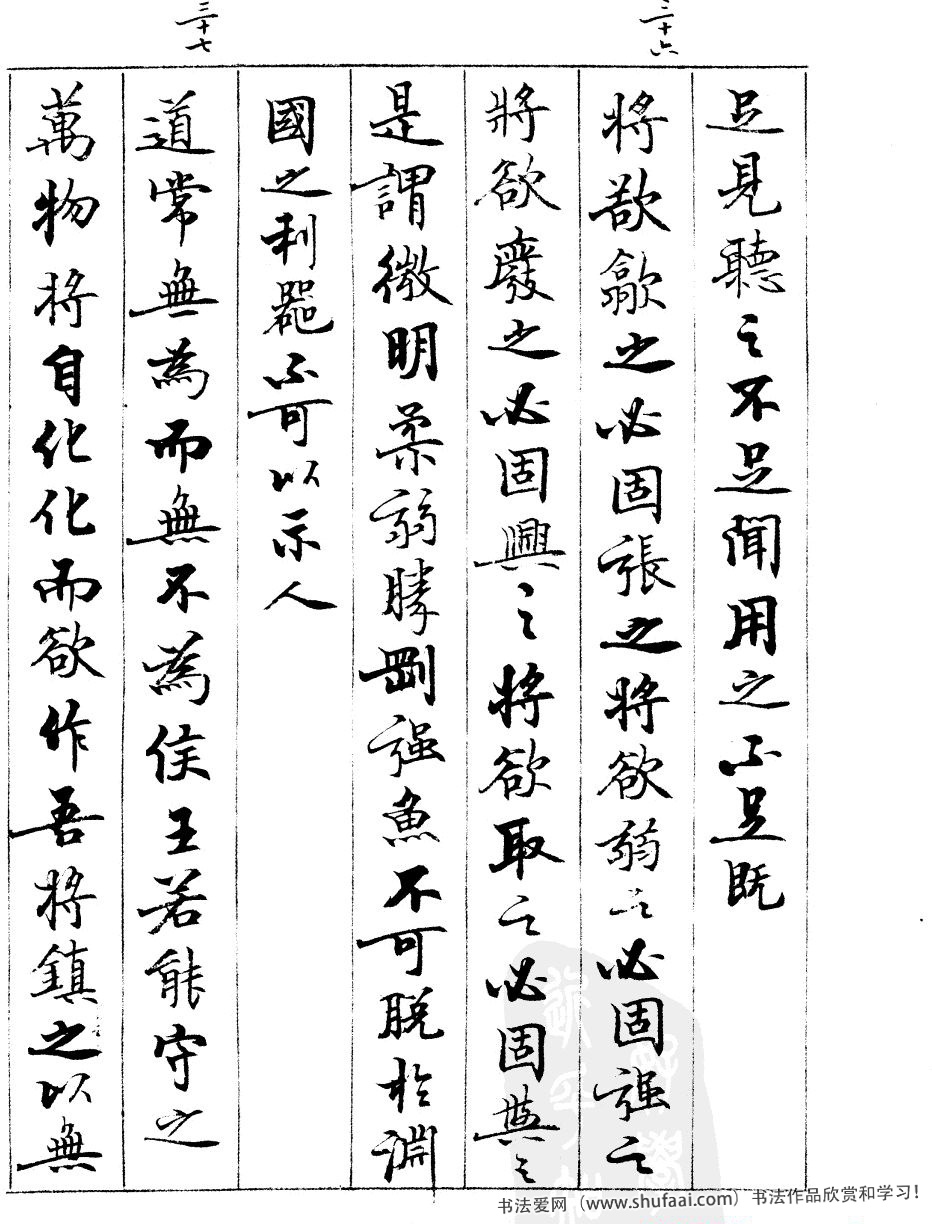 三十六
足見聽之不足聞用之不足既
将欲歙之必固張之将欲弱之必固强之
将欲廢之必固興之将欲取之必固與之
是謂微明柔弱勝剛强魚不可脱於淵
國之利器不可以示人
三十七
道常無為而無不為侯王若能守之
萬物将自化化而欲作吾将鎮之以無
书法爱网（www.shufaai.com）书法作品欣赏和学习！